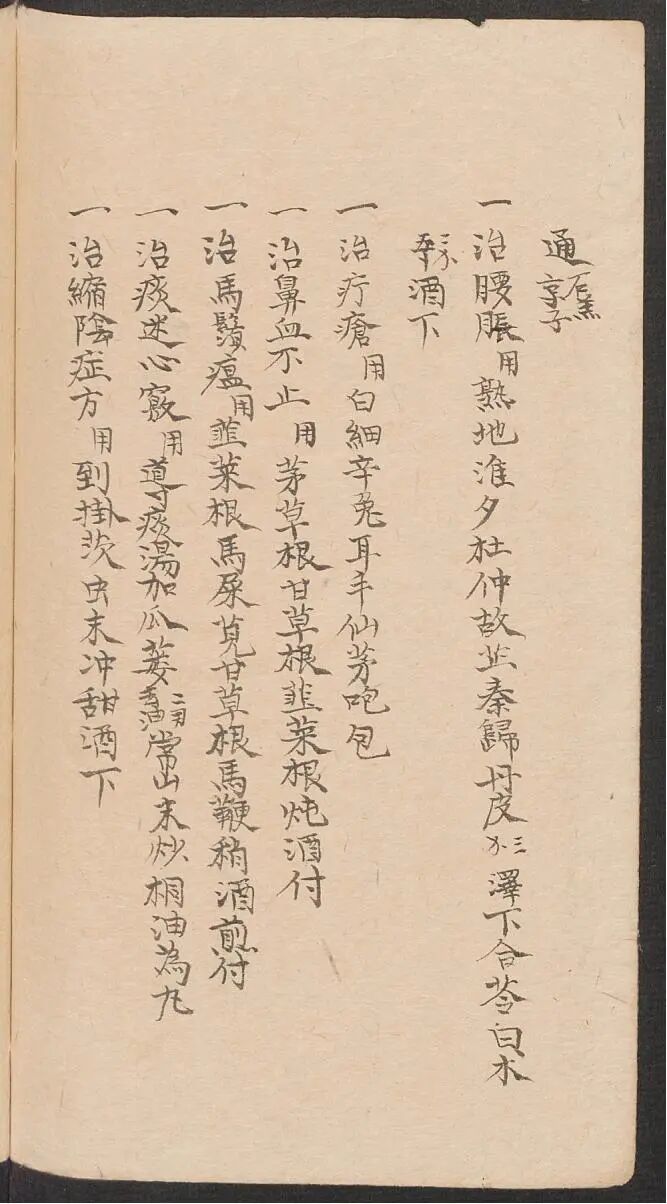 通 石羔 亭子
一治腰脹用熟地淮夕杜仲故芷秦歸丹皮三分澤下合苓白朮
三分 酒下
一治疔瘡用白細辛兔耳手仙茅咆包
一治鼻血不止用茅草根甘草根韮菜根炖酒付
一治馬鬚瘟用韮菜根馬屎莧甘草根馬鞭稍酒煎付
一治痰迷心竅用導痰湯加瓜蒌 二用 常山末炒桐油為九
一治縮陰症方用到掛茨虫末冲甜酒下